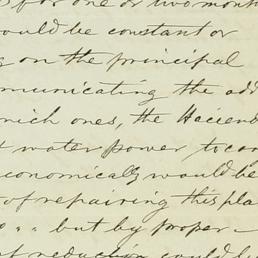 for one or two month
ould be constant or
g on the principal
mmunicating the add
rich ones, the Haciend
t water power to con
economically would be
of repairing this pla
" " but by proper
reduction could b